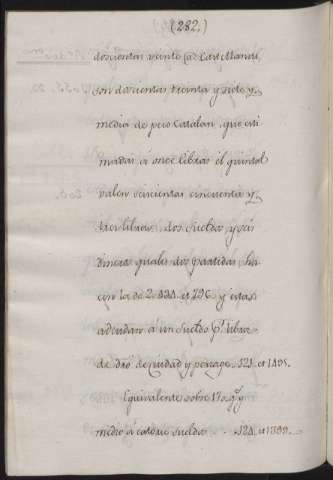 (282.)
doscientas veinte
son doscientas treinta y siete y
media de peso Catalan, que esti
madas á once libras el quintal
valen seiscientas cincuenta y
tres libras, dos sueldos y seis
dineros quales dos partidas ha
cen la de y estas
adeudan á un sueldo pr. libra
de dro. de ciudad y periage
Equivalente sobre 170. q.s y
medio á catorce sueldos